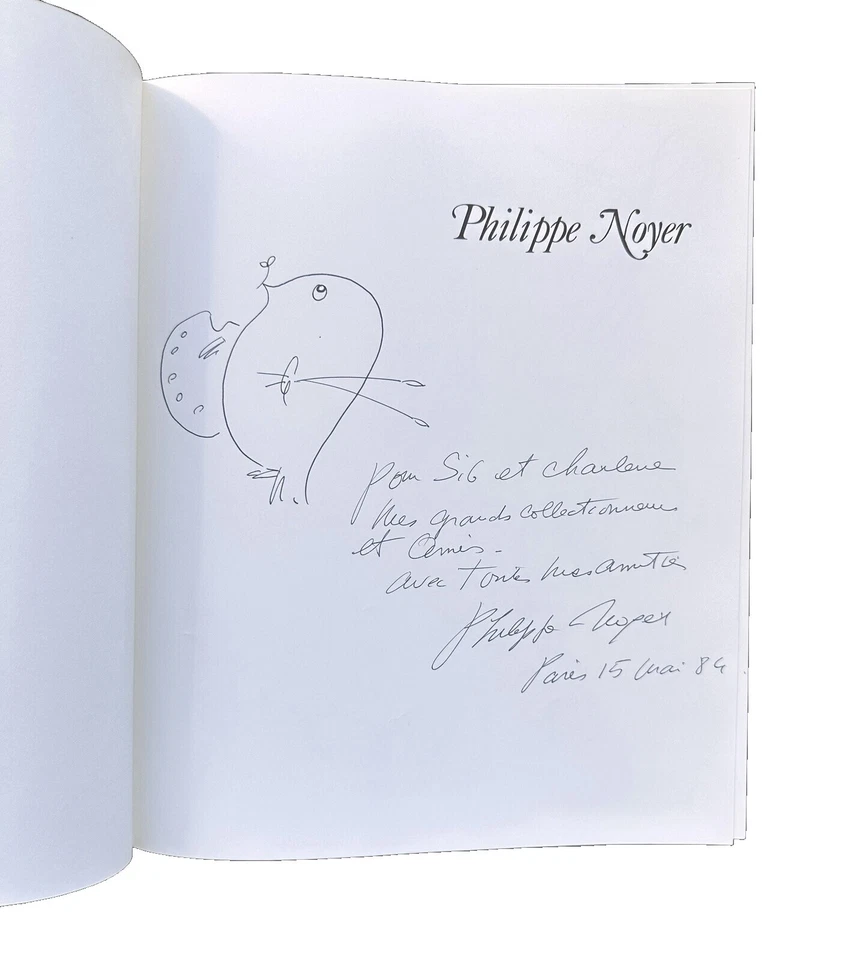 Philippe Noyer
pour Sig et charlene
mes grands collectionneurs
et Amis.
avec toutes mes amitiés
Philippe Noyer
Paris 15 Mai 84